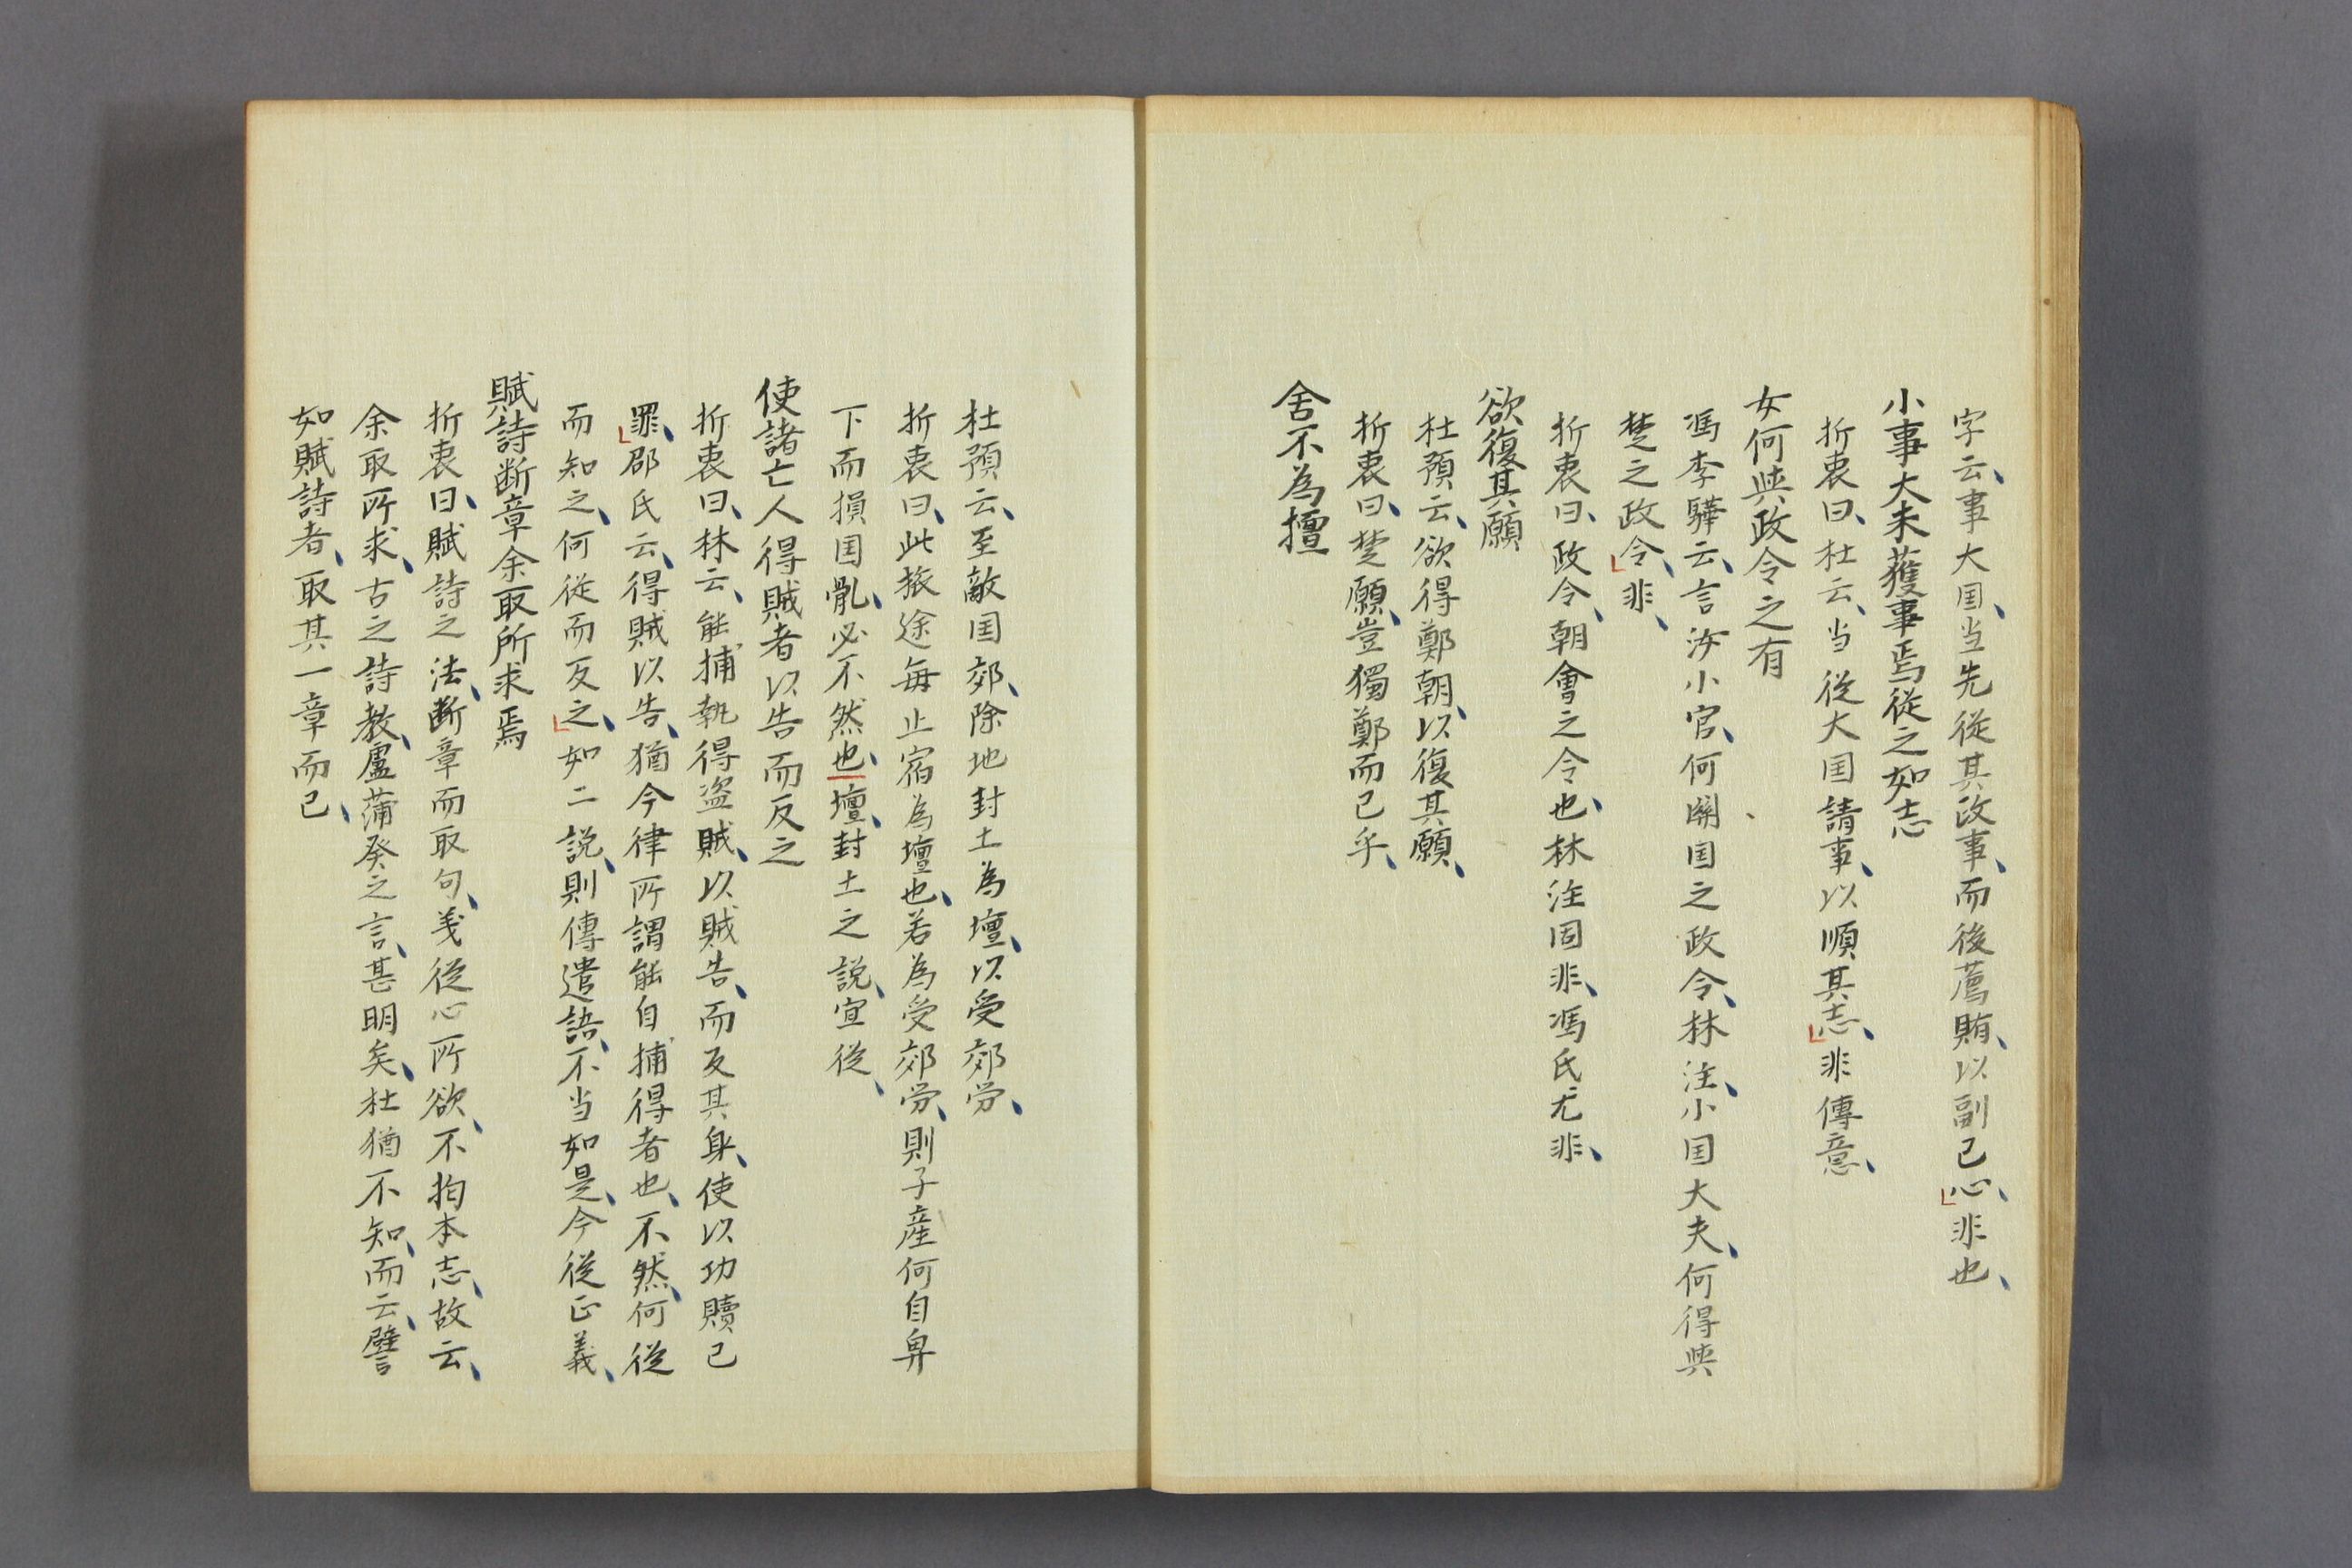 字云、事大囯、当先從其政事、而後薦賄、以副己心、非也、
小事大未獲事焉從之如志
折衷曰、杜云、当從大囯請事、以順其志、非傳意、
女何與政令之有
馮李驊云、言汝小官、何関囯之政令、林注、小囯大夫、何得與
楚之政令、非、
折衷曰、政令、朝會之令也、林注固非、馮氏尤非、
欲復其願
杜預云、欲得鄭朝、以復其願、
折衷曰、楚願、豈獨鄭而已乎、
舍不為壇
杜預云、至敵囯郊、除地封土為壇、以受郊労、
折衷曰、此旅途每止宿為壇也、若為受郊労、則子産何自卑
下而損囯亂、必不然也、壇、封土之説、宜従、
使諸亡人得賊者以告而反之
折衷曰、林云、能捕執得盗賊、以賊告、而反其身、使以功贖己
罪、郡氏云、得賊以告、猶今律所謂能自捕得者也、不然、何從
而知之、何從而反之、如二説、則傳遣語、不当如是、今從正義、
賦詩断章余取所求焉
折衷曰、賦詩之法、断章而取句、義從心所欲、不拘本志、故云、
余取所求、古之詩教、盧蒲癸之言、甚明矣、杜猶不知、而云、譬
如賦詩者、取其一章而已、